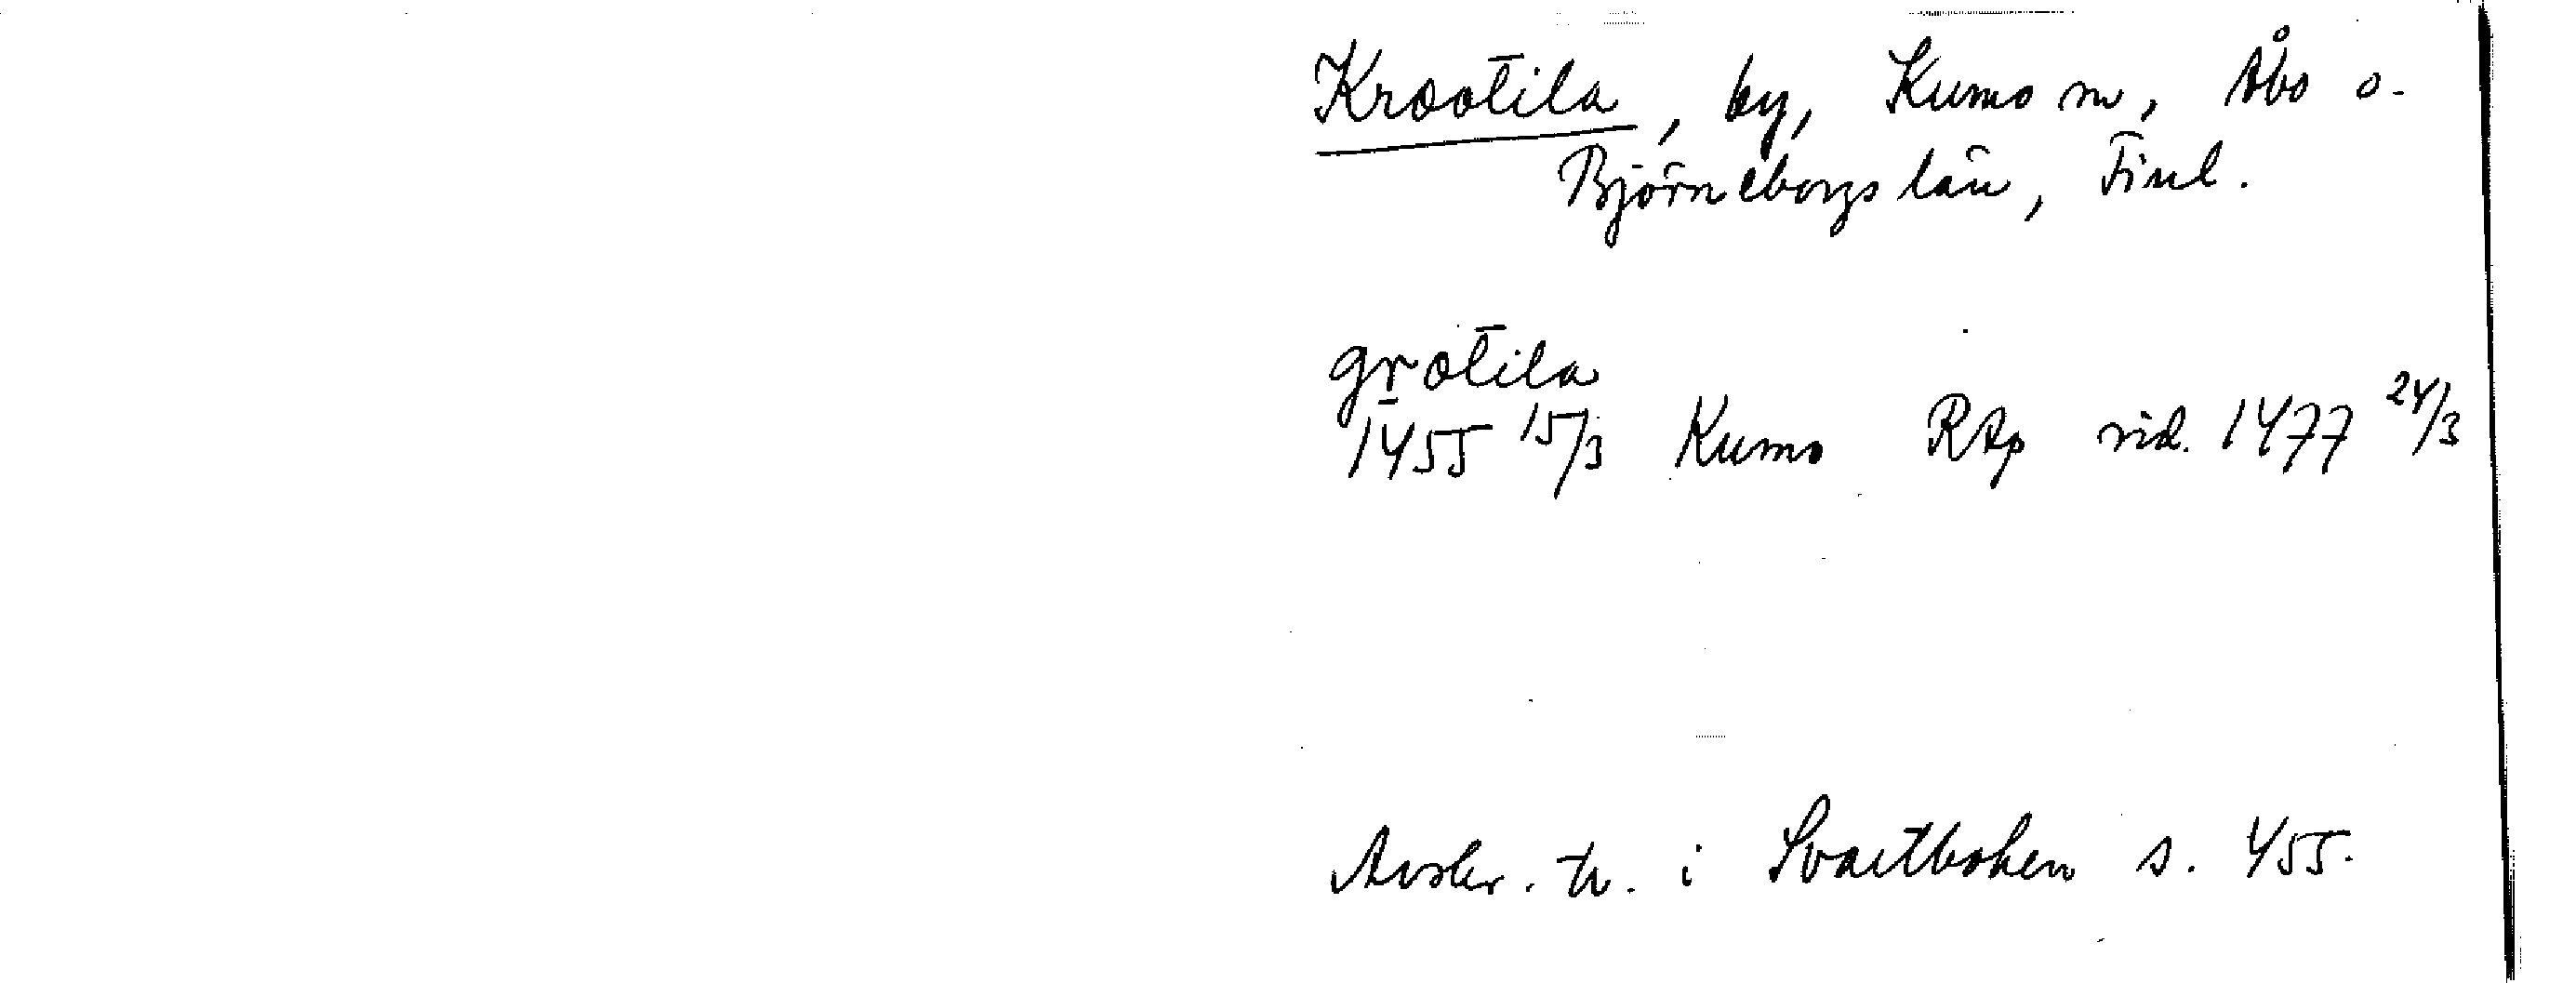 Krootila, by, Kumo sn, Åbo o.
Björneborgs län, Finl.
grotila
1455 15/3 Kumo RAp vid. 1477 24/3
Avskr. tr. i Svartboken s. 455.